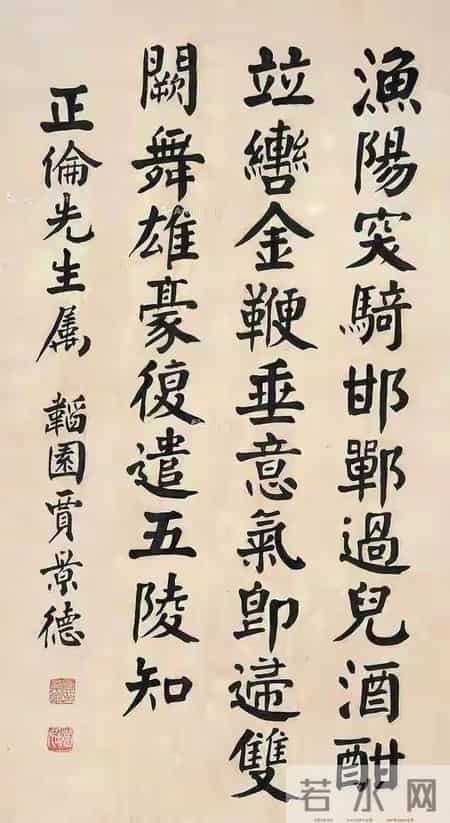 漁陽突騎邯鄲過兒酒酣
竝轡金鞭垂意氣卽歸雙
闕舞雄豪復遣五陵知
正倫先生屬 韜園賈景德
若水网